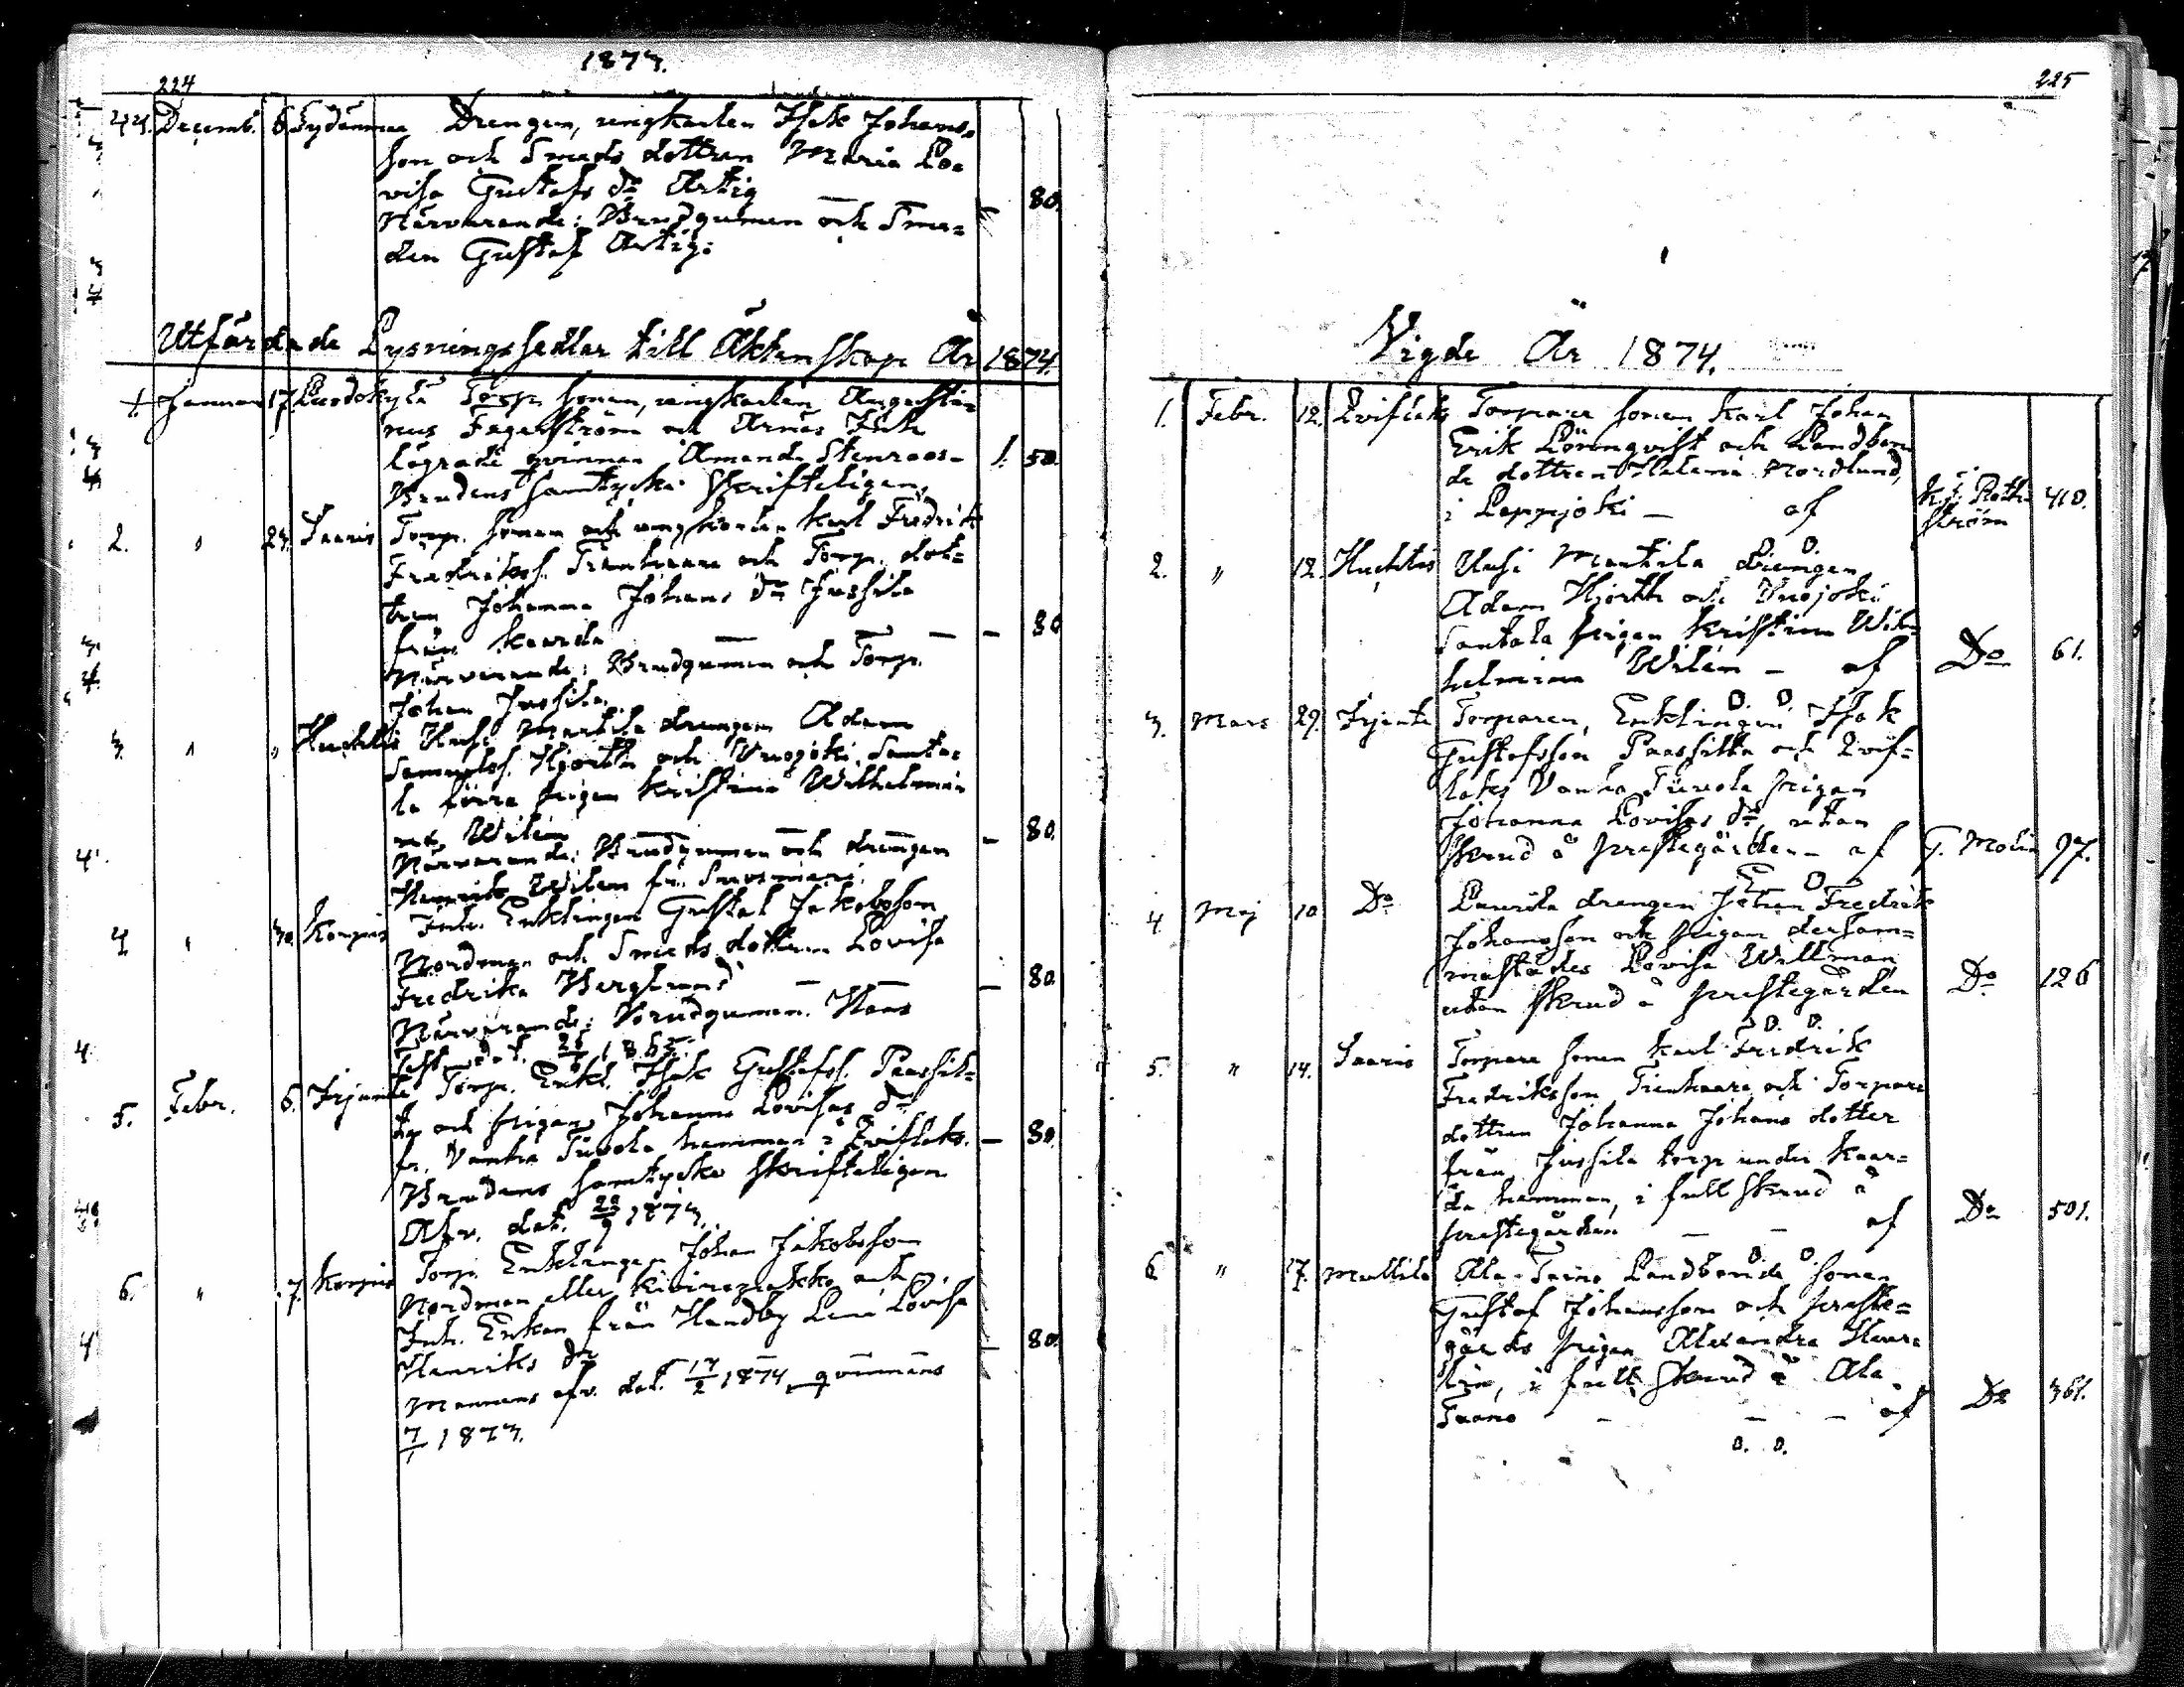 1873.
224
44. Decemb. 6 Sydänmaa Drengen, ungkarlen Isak Johans-
son och Smeds dottren Maria Lo-
visa Gustafs dr Artig
Närvarande: Brudgumen och Sme- 80.
den Gustaf Artig:
Utfärdade Lysningssedlar till Äktenskap År 1874.
1. Januar 17. Torp. sonen, ungkarlen Augusti-
nus Fagerström och Arnäs Inh
qvinnan Amanda Stenroos- 1. 50.
Brudens samtycke skrifteligen.
2. " 23. Saaris Torp. sonen och ungkarlen Karl Fredrik
Fredrikss. Trenhaara och Torp. dot-
tren Johanna Johans dr Jussila
från Kaarda — — — — 80
Närvarande: Brudgumen och Torp.
Johan Jussila.
3. " " Huchtis Uusi Mantila drengen Adam
Samuelss. Hjorth och Vuojoki Santa-
la pigan Kristina Wilhelmi-
na Wilen — — — 80.
Närvarande: Brudgumen och drengen
Henrik Wilen fr.
4 " 30. Korpis Inh. Enklingen Gustaf Jakobsson
Nordman och Smeds dottren Lovisa
Fredrika Berglund — — — 80.
Närvarande: Brudgumen. Hans
5. Febr. 6. Irjante Torp. Enkl. Isak Gustafss. Paassil-
ta och pigan Johanna Lovisas dr
fr. Vanha Tuvola hemman i Qviflaks. — 80.
Brudens samtycke skrifteligen
Afv. dat. 1873.
6. " 7. Korpis Torp. Enklingen Johan Jakobsson
Nordman eller och
Inh. Enkan från Handby Lena Lovisa
Henriks dr — — 80.
Mannens afv. dat. 17/2 1874, qvinnans
7/1 1873.
225
Vigde År 1874.
1. Febr. 12. Qviflaks Torpare sonen Karl Johan
Erik Lönnqvist och Landbon-
de dottren Helena Nordlund,
i Lappijoki — af K. J. Roth- 410.
ström
2. " 12. Huchtis Uusi Mantila Drengen
Adam Hjorth och Vuojoki
Santala pigan Kristina Wil-
helmina Wilen — af Do 61.
3. Mars 29. Irjante Torparen, Enklingen Isak
Gustafsson Paassilta och Qvif-
laks Vanha Tuvola pigan
Johanna Lovisas dr, utan
skrud å prestegården — af G. Molin 97.
4 Maj 10 Do Laurila drengen Johan Fredrik
Johansson och pigan dersam-
mastädes Lovisa Willman,
utan skrud å prestegården Do 126
5. " 14. Saaris Torpare sonen Karl Fredrik
Fredriksson Trenhaara och Torpare
dottren Johanna Johans dotter
från Jussila torp under Kaar-
da hemman, i full skrud å
prestegården — — af Do 501.
6 " 17. Mullila Ala-Teino Landbonde sonen
Gustaf Johansson och preste-
gårds pigan Alexandra
i full skrud å Ala-
— — — af Do 361.